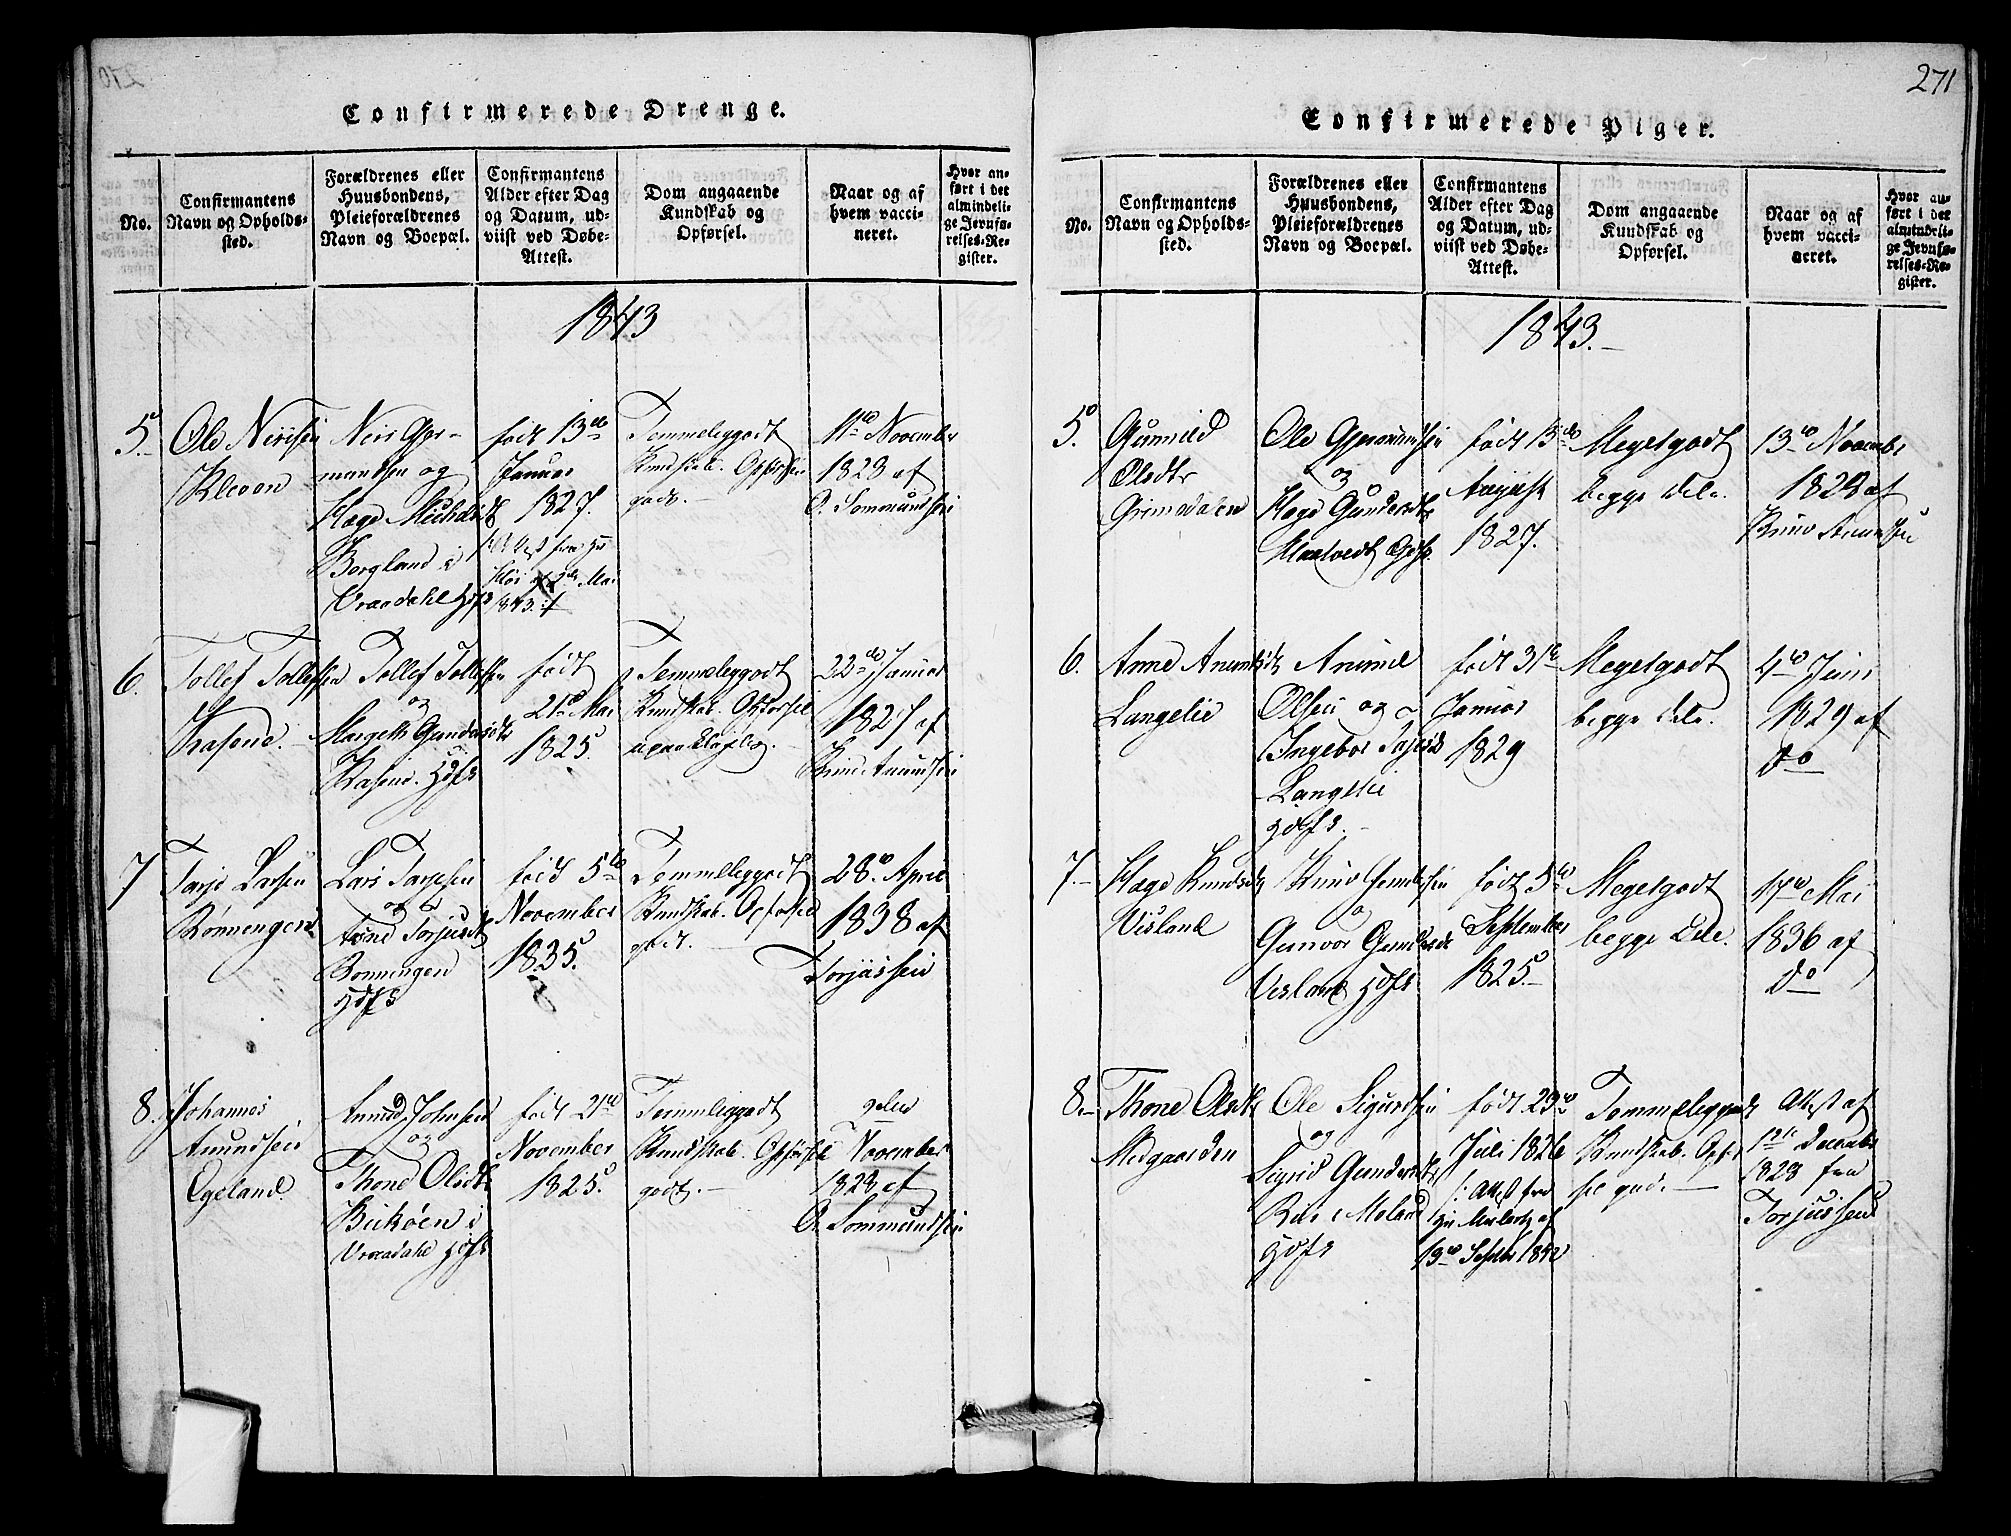 271
Confirmerede Drenge.
No.
Confirmantens
Navn og Opholds-
sted.
Forældrenes eller
Huusbondens,
Pleieforældrenes
Navn og Boepæl.
Confirmantens
Alder efter Dag
og Datum, ud-
viist ved Døbe-
Attest.
Dom angaaende
Kundskab og
Opførsel.
Naar og af
hvem vacci-
neret.
Hvor an-
ført i det
almindeli-
ge Jevnfø-
relses-Re-
gister.
1843
5.
Ole Nirisen
Kleven
og
Borgland i
Vraadahl
født 13de
Januar
1827.
Temmeliggodt
Kundskab. Opførsel
godt.
11te November
1828 af
O. Sommundsen
6.
Tollef Tollefsen
Kasene.
Tollef Tollefsen
og
Margeth Gundersdtr
Kasene.
født
21de Mai
1825.
Temmeliggodt
Kundskab. Opførsel
upaaklagelig.
22de Januar
1827 af
Knud Anundsen
7
Tarje Larsen
Rønnengen
Lars Tarjesen
og
Torjusdtr
Rønnengen
født 5te
November
1835.
Temmeliggodt
Kundskab. Opførsel
godt.
28de April
1838 af
Torjussen
8.
Johannes
Anundsen
Egeland.
Anund Johnsen
og
Thone Olsdtr
Birkøen i
Vraadahl
født 21de
November
1825.
Temmeliggodt
Kundskab. Opførsel
godt.
November
1828 af
O. Sommundsen
Confirmerede Piger.
No.
Confirmantens
Navn og Opholds-
sted.
Forældrenes eller
Huusbondens,
Pleieforældrenes
Navn og Boepæl.
Confirmantens
Alder efter Dag
og Datum, ud-
viist ved Døbe-
Attest.
Dom angaaende
Kundskab og
Opførsel.
Naar og af
hvem vacci-
neret.
Hvor an-
ført i det
almindeli-
ge Jevnfø-
relses-Re-
gister.
1843.
5.
Gunnild
Olsdtr
Grimedalen
Ole Gjermundsen
og
Hæge Gundersdtr
født 15de
August
1827.
Megetgodt
begge dele.
13de Novembr
1828 af
Knud Anundsen
6.
Anne Anundsdtr
Langelie
Anund
Olsen og
Ingebor
Langelie
født 31te
Januar
1829
Megetgodt
begge dele.
4de Juni
1829 af
do
7.
Hæge Knudsdtr
Visland
Knud
og
Gunvor Gundersdtr
Visland
født 5te
September
1825.
Megetgodt
begge dele.
17de Mai
1836 af
do
8.
Thone Olsdtr
Midgaarden
Ole Sigurdsen
og
Sigrid Gundersdtr
i Moland
født 23de
Juli 1826
/: Attest fra
af
13de Septbr 1842
Temmeliggodt
Kundskab. Opfør-
sel god.
Attest af
12te Decembr
1828 fra
Torjussen